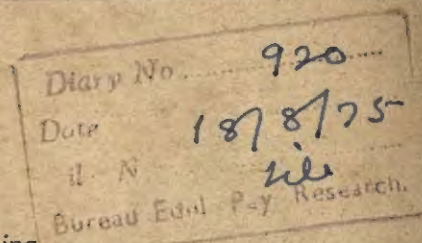 Diary No. 920
Date 18/8/75
N
Bureau Edul Psy Research.